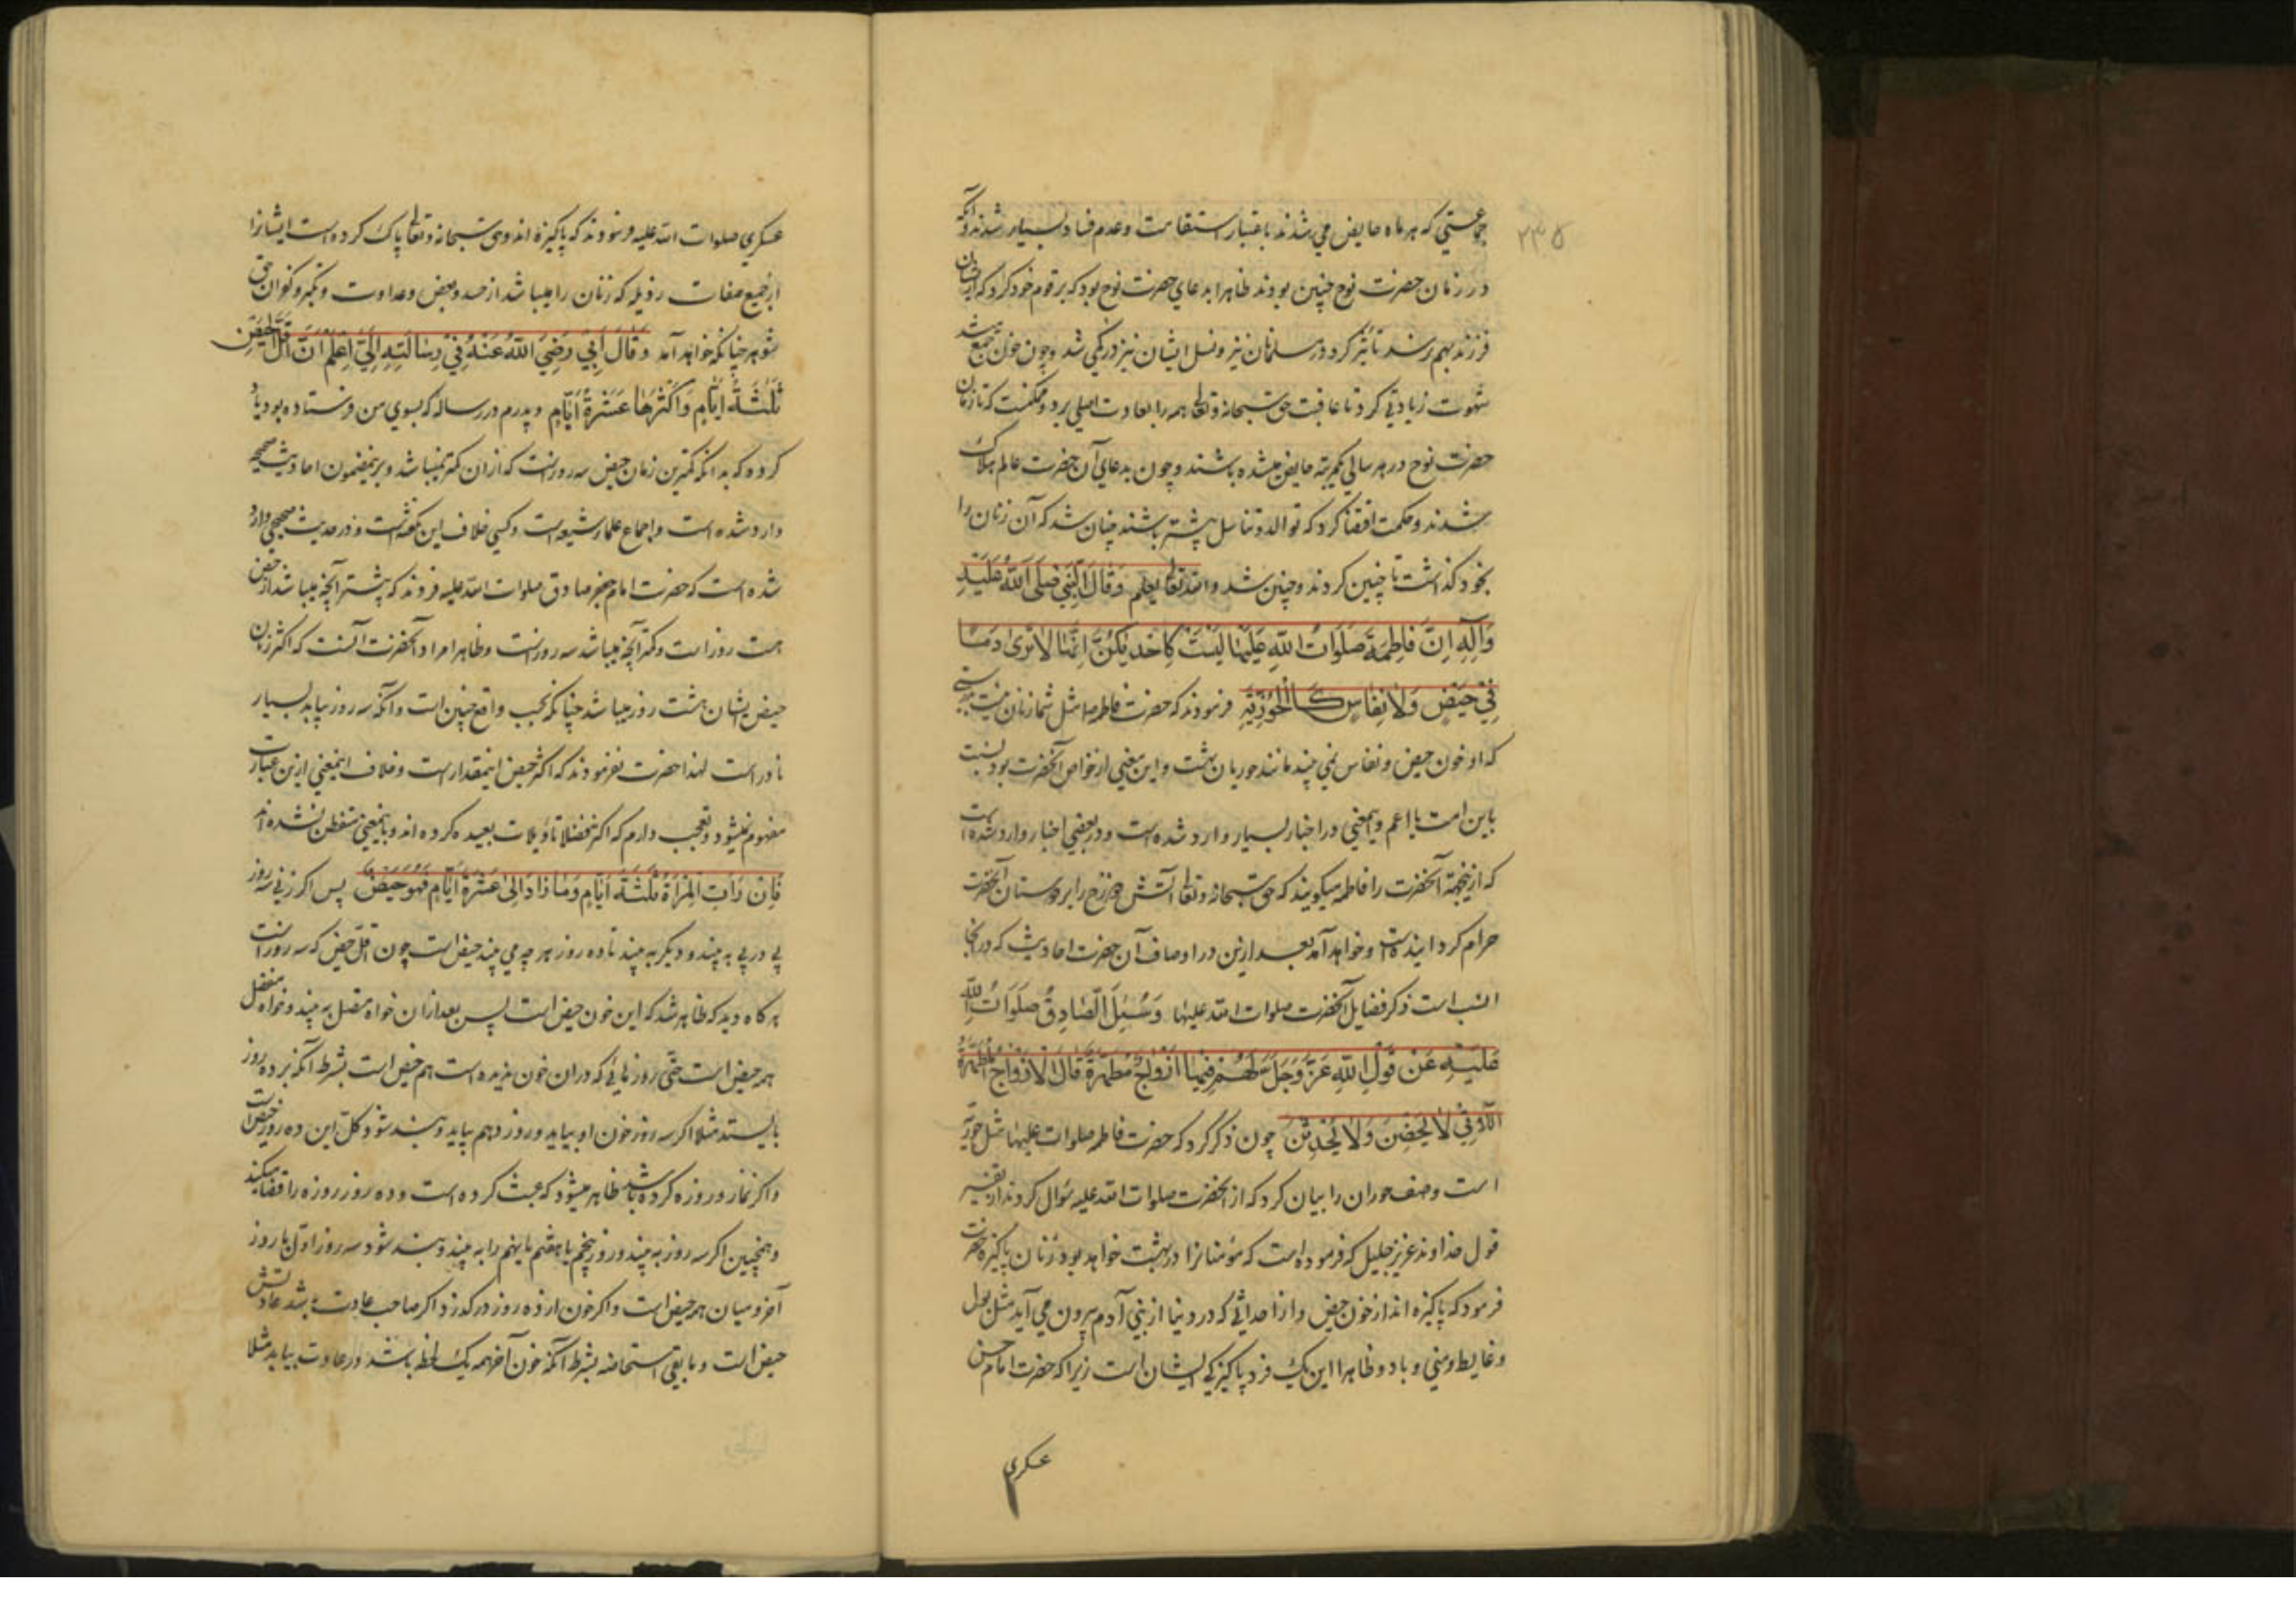 ۲۳۵
جمعیتي که هر ماه حایض مي شدند باعتبار استقامت و عدم فساد بسیار شدند و آنکه
در زمان حضرت نوح چنین بودند ظاهرا بدعای حضرت نوح بود که بر قوم خود کرد که ایشان
فرزند بهم رسند تأثیر کرد در مسلمانان نیز و نسل ایشان نیز در کمی شد و چون خون جمع شد
شهوت زیادتی کرد تا عاقبت حق سبحانه و تعالی همه را بعادت اصلی برد و ممکنست که تا زمان
حضرت نوح در هر سالی یکمرتبه حایض میشده باشند و چون بدعای آن حضرت عالم هلاک
شدند و حکمت اقتضا کرد که توالد و تناسل بیشتر باشند چنان شد که آن زنان را
بخود گذاشت تا چنین کردند و چنین شد والله تعالی یعلم وَقَالَ النَّبِيُّ صَلَّى اللهُ عَلَيْهِ
وَآلِهِ اِنَّ فَاطِمَةَ صَلَوَاتُ اللهِ عَلَيْهَا لَيْسَتْ كَاَحَدٍ يكُنَّ اِنَّهَا لَا تَرٰى دَمًا
فِيْ حَيْضٍ وَلَا نِفَاسٍ كَالْحُوْرِيَّةِ فرمودند که حضرت فاطمه ص مثل شما زنان نیست
که او خون حیض و نفاس نمی بیند مانند حوریان بهشت و این معنی از خواص آنحضرت بود نسبت
باین امت یا اعم و اینمعنی در اخبار بسیار وارد شده است و در بعضی اخبار وارد شده است
که از اینجهة آنحضرت را فاطمه میگویند که حق سبحانه و تعالی آتش دوزخ را بر دوستان آنحضرت
حرام گردانیده است و خواهد آمد بعد ازین در اوصاف آن حضرت احادیث که در آنجا
انسب است ذکر فضایل آنحضرت صلوات الله علیها وَسُئِلَ الصَّادِقُ صَلَوَاتُ اللهِ
عَلَيْهِ عَنْ قَوْلِ اللهِ عَزَّ وَجَلَّ لَهُمْ فِيْهَا اَزْوَاجٌ مُطَهَّرَةٌ قَالَ الْاَزْوَاجُ الْمُطَهَّرَةُ
اللَّاتِي لَا يَحِضْنَ وَلَا يُحْدِثْنَ چون ذکر کرد که حضرت فاطمه صلوات علیها مثل حوریه
است وصف حوران را بیان کرد که از آنحضرت صلوات الله علیه سؤال کردند از تفسیر
قول خداوند عزیز جلیل که فرموده است که مؤمنانرا در بهشت خواهد بود زنان پاکیزه حضرت
فرمود که پاکیزه اند از خون حیض و از احداثی که در دنیا از بنی آدم بیرون می آید مثل بول
و غایط و منی و باد و ظاهرا این یک فرد پاکیزگی ایشان است زیرا که حضرت امام حسن
عسکری
عسکری صلوات الله علیه فرمودند که پاکیزه اند و حق سبحانه و تعالی پاک کرده است ایشانرا
از جمیع صفات رذیله که زنان را میباشد از حسد و بغض و عداوت و تکبر و کفران حق
شوهر چنانکه خواهد آمد وَقَالَ اَبِيْ رَضِيَ اللهُ عَنْهُ فِيْ رِسَالَتِهِ اِلَيَّ اِعْلَمْ اَنَّ اَقَلَّ الْحَيْضِ
ثَلٰثَةُ اَيَّامٍ وَاَكْثَرُهَا عَشَرَةُ اَيَّامٍ و پدرم در رساله که بسوی من فرستاده بود یاد
کرده که بدانکه کمترین زمان حیض سه روز است که از آن کمتر نمیباشد و برینمضمون احادیث صحیحه
وارد شده است و اجماع علماء شیعه است و کسی خلاف این نگفته است و در حدیث صحیحی وارد
شده است که حضرت امام جعفر صادق صلوات الله علیه فرمودند که بیشتر آنچه میباشد از حیض
هشت روز است و کمتر آنچه میباشد سه روز است و ظاهرا مراد آنحضرت آنست که اکثر زنان
حیض ایشان هشت روز میباشد چنانکه بحسب واقع چنین است و آنکه سه روز بیاید بسیار
نادر است لهذا حضرت نفرمودند که اکثر حیض اینمقدار است و خلاف اینمعنی ازین عبارت
مفهوم نمیشود و تعجب دارم که اکثر فضلا تأویلات بعیده کرده اند و باینمعنی متفطن نشده اند
فَاِنْ رَاَتِ الْمَرْاَةُ ثَلٰثَةَ اَيَّامٍ وَمَا زَادَ اِلٰى عَشَرَةِ اَيَّامٍ فَهُوَ حَيْضٌ پس اگر زنی سه روز
پی در پی به بیند و دیگر به بیند تا ده روز هر چه می بیند حیض است چون اقل حیض که سه روز است
هر گاه دید که ظاهر شد که این خون حیض است پس بعد از آن خواه متصل به بیند و خواه منفصل
همه حیض است حتی روزهائی که در آن خون ندیده است هم حیض است بشرط آنکه بر ده روز
بایستد مثلا اگر سه روز خون او بیاید و روز دهم بیاید و بند شود کل این ده روز حیض است
و اگر نماز و روزه کرده باشد ظاهر میشود که عبث کرده است و ده روز روزه را قضا میکند
و همچنین اگر سه روز به بیند و روز پنجم یا هفتم یا نهم را به بیند و بند شود سه روز اول با روز
آخر و میان همه حیض است و اگر خون از ده روز در گذرد اگر صاحب عادت باشد عادتش
حیض است و ما بقی استحاضه بشرط آنکه خون آخر همه یک لحظه باشد در عادت بیاید مثلا